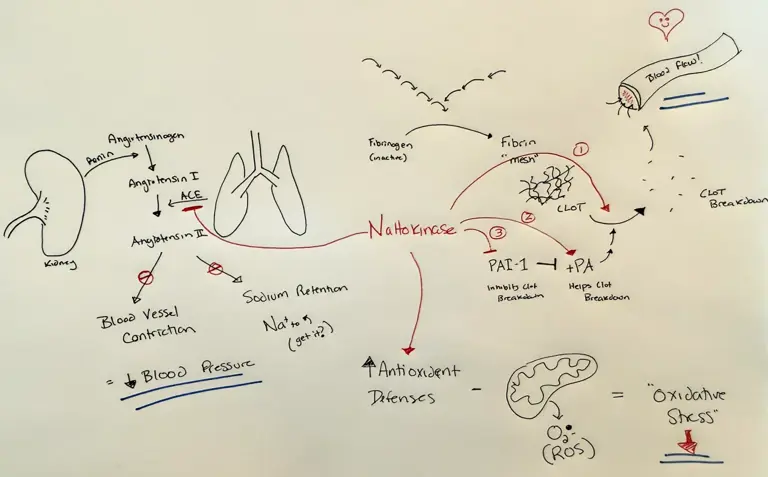 Angiotensinogen
Renin
Angiotensin I
ACE
Angiotensin II
Kidney
Blood Vessel
Contriction
Sodium Retention
Na⁺ to
(get it?)
= ↓ Blood Pressure
Fibrinogen
(inactive)
Fibrin
"mesh"
①
CLOT
Blood Flow!
CLOT
Breakdown
Nattokinase
②
③
PAI-1
Inhibits Clot
Breakdown
tPA
Helps Clot
Breakdown
↑ Antioxident
Defenses
-
O₂•-
(ROS)
=
"Oxidative
Stress"